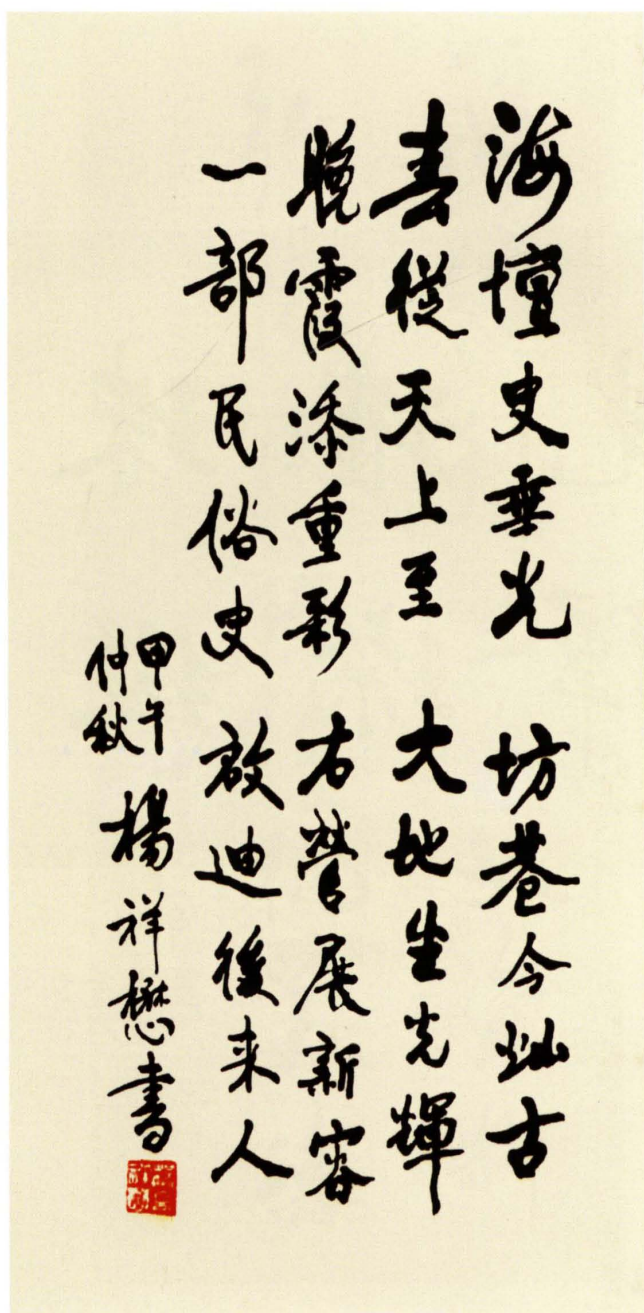 海壇史垂光 坊巷今灿古
喜從天上至 大地生光輝
晚霞添重彩 右營展新容
一部民俗史 啟迪後来人
甲午
仲秋
楊祥懋書